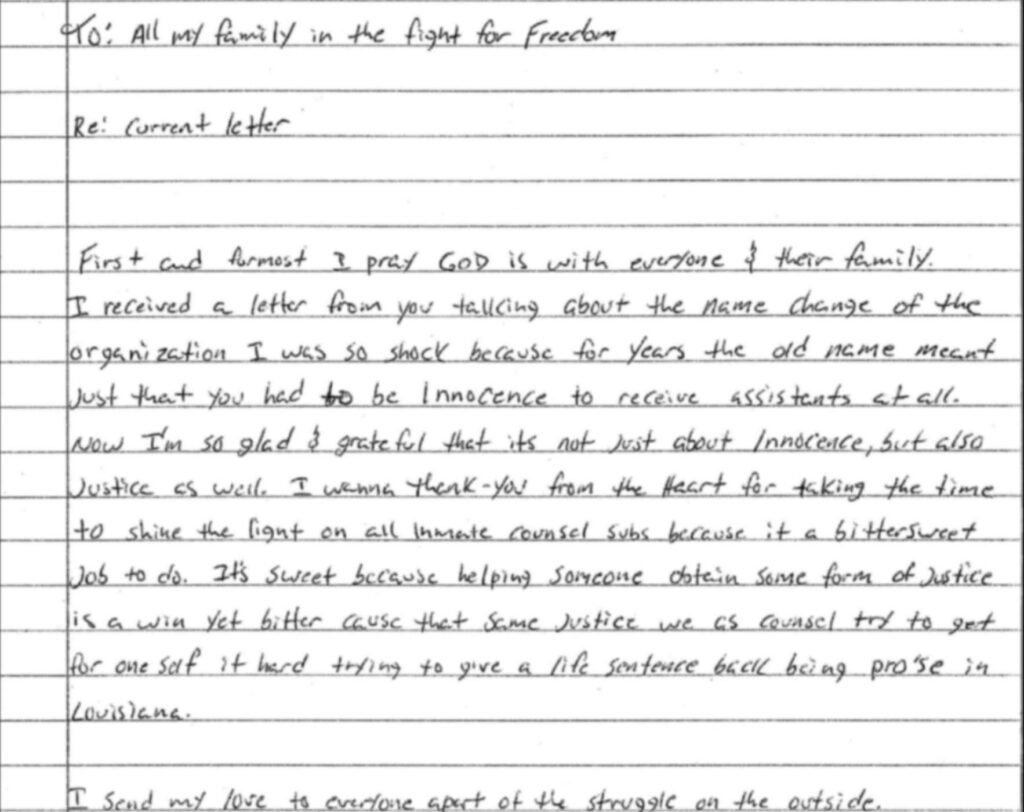 To: All my family in the fight for Freedom
Re: Current letter
First and formost I pray GOD is with everyone & their family.
I received a letter from you talking about the name change of the
organization I was so shock because for years the old name meant
Just that you had to be Innocence to receive assistants at all.
Now I'm so glad & grateful that its not Just about Innocence, but also
Justice as well. I wanna thank-you from the Heart for taking the time
to shine the light on all Inmate counsel subs because it a bittersweet
Job to do. It's sweet because helping someone obtain some form of Justice
is a win yet bitter cause that same Justice we as counsel try to get
for one self it hard trying to give a life sentence back being pro'se in
Louisiana.
I send my love to everyone apart of the struggle on the outside.